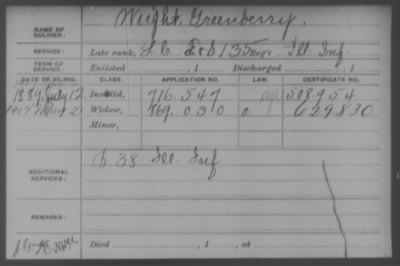 NAME OF SOLDIER: Weight, Greenberry.
SERVICE: Late rank, Regt. Ill. Inf
TERM OF SERVICE: Enlisted , 1 Discharged , 1
DATE OF FILING. CLASS. APPLICATION NO. LAW. CERTIFICATE NO.
1889, July 12 Invalid, 716.547 508.954
1917 May 2 Widow, 869.030 629830
Minor,
ADDITIONAL SERVICES: 38. Ill. Inf
REMARKS:
Died , 1 , at